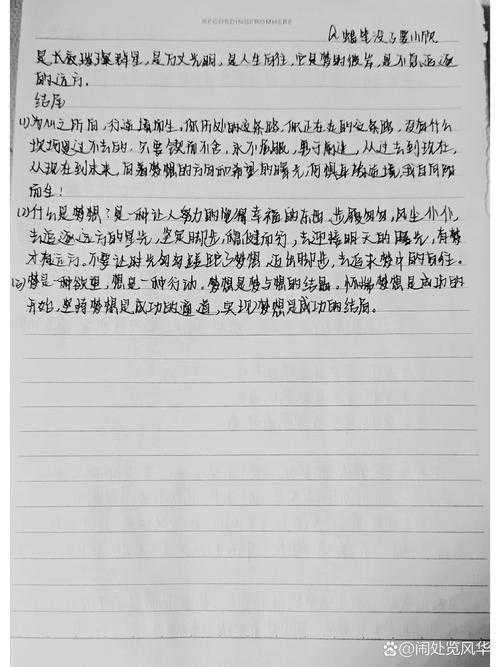 RECORDINGFROMHERE
是长夜璀璨群星，是万丈光明，是人生向往，它是梦的彼岸，是不息追逐
的远方。
结尾
(1)为心之所向，行逆境而生，你历处的这条路，你正在走的这条路，没有什么
坎坷是过不去的，不要锲而不舍，永不屈服，勇于前进，从过去到现在，
从现在到未来，向着梦想的方向和希望的曙光，何惧身输逆境，我自向阳
而生！
(2)什么是梦想？是一种让人努力的憧憬幸福的东西，步履匆匆，风尘仆仆，
去追逐远方的星光，坚定脚步，稳健而行，去迎接明天的曙光，有梦
才有远方。不要让时光匆匆掩藏了梦想，迈出脚步，去追求梦中的向往。
(3)梦是一种欲望，想是一种行动。梦想是梦与想的结晶。怀揣梦想是成功的
开始，坚持梦想是成功的通道，实现梦想是成功的结局。
@闹处览风华